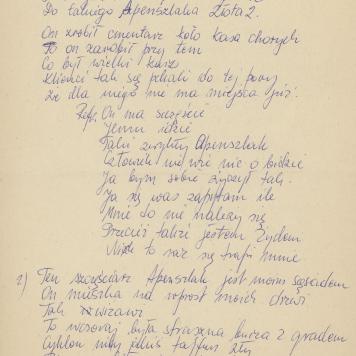 Do takiego Apenszlaka Złota 2.
On zrobił cmentarz koło kasa chorych
To on zarobił przy tem
Co był wielki kurz
Klienci tak się pchali do tej pory
Że dla niego nie ma miejsca już.
Refr. On ma szczęście
Jemu idzie
Taki zwykły Apenszlak
Człowiek nie wie nic o bidzie
Ja bym sobie życzył tak.
Ja się was zapytam ile
Mnie to nie należy się
Przecież także jestem Żydem
Niech to raz się trafi mnie
2) Ten szczęściarz Apenszlak jest moim sąsiadem
On mieszka na wprost moich drzwi
Tak
To wczoraj była straszna burza z gradem
Cyklon niby jakiś tajfun zły